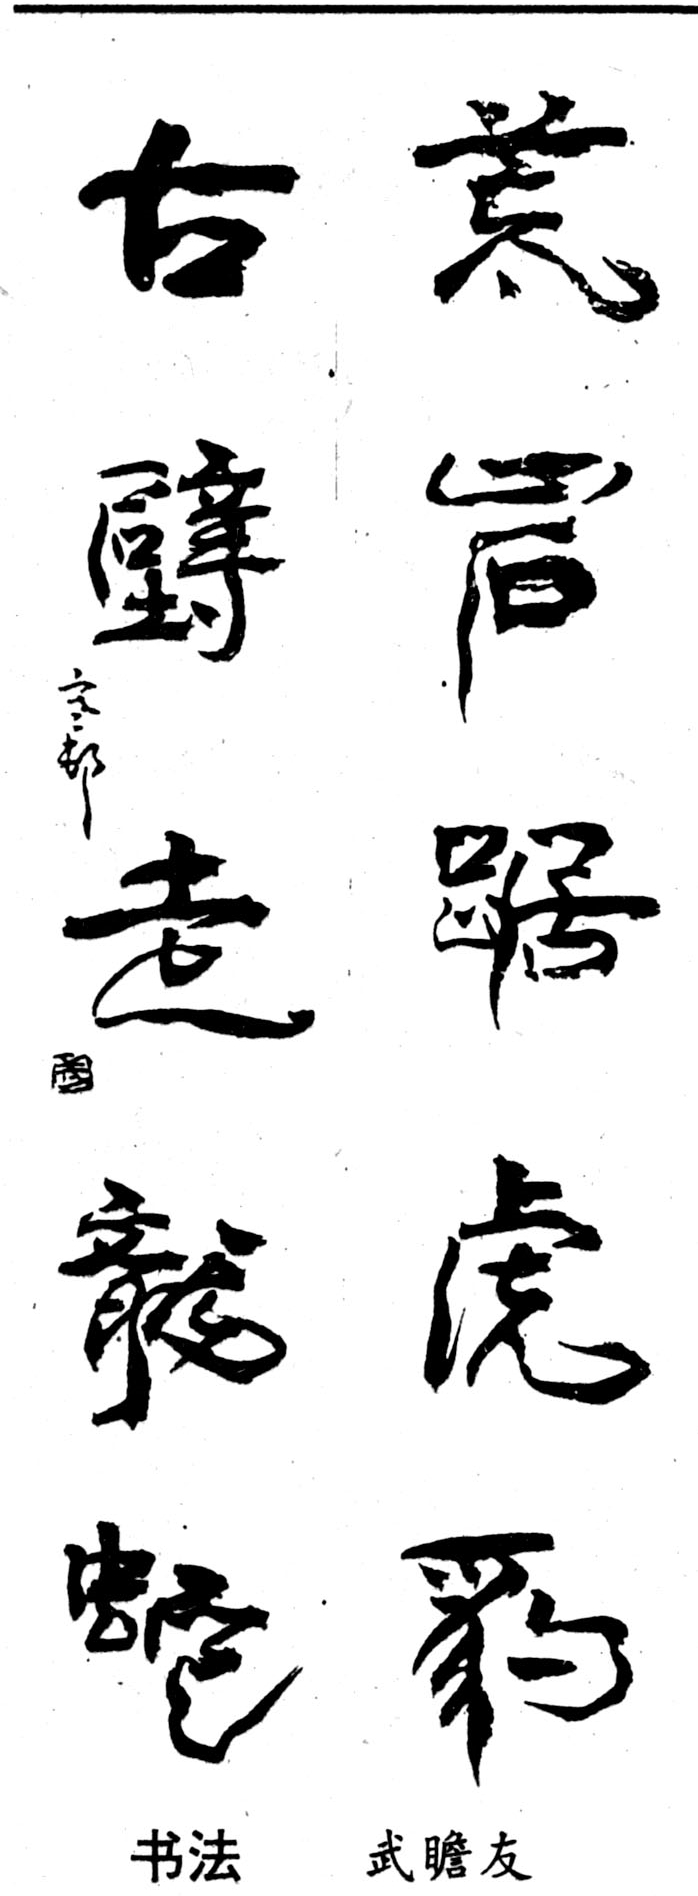 荒岩踞虎豹
古壁走龍蛇
书法 武瞻友